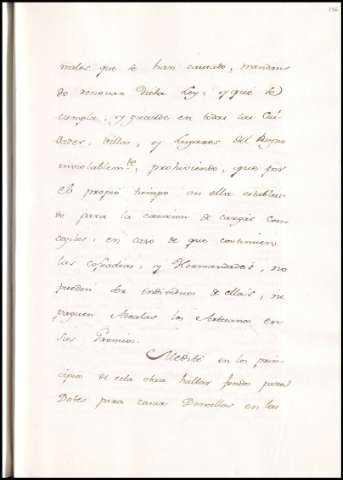 males que se han causado, mandan
do renovar dicha Ley, y que se
cumpla, y guarde en todas las Ciu-
dades, Villas, y Lugares del Reyno
inviolablem.te, prohiviendo, que por
el propio tiempo en ella establecí-
do para la de cargas con-
cegiles, en caso de que continuen
las cofradias, y Hermandades, no
puedan ser individuos de ellas, ni
paguen los Artesanos en
sus Gremios.
Medité en los prin-
cipios de esta obra hallar fondos para
Dotes para casar Doncellas en las